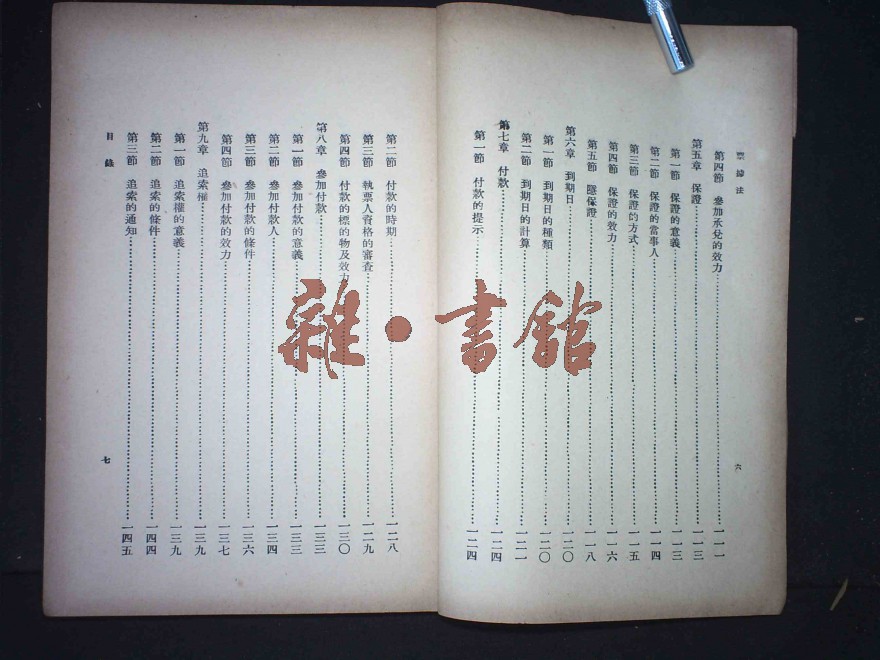 票據法
第四節 參加承兌的效力 一一一
第五章 保證 一一三
第一節 保證的意義 一一三
第二節 保證的當事人 一一四
第三節 保證的方式 一一五
第四節 保證的效力 一一六
第五節 隱保證 一一八
第六章 到期日 一二〇
第一節 到期日的種類 一二〇
第二節 到期日的計算 一二一
第七章 付款 一二四
第一節 付款的提示 一二四
六
第二節 付款的時期 一二八
第三節 執票人資格的審查 一二九
第四節 付款的標的物及效力 一三〇
第八章 參加付款 一三三
第一節 參加付款的意義 一三三
第二節 參加付款人 一三四
第三節 參加付款的條件 一三六
第四節 參加付款的效力 一三七
第九章 追索權 一三九
第一節 追索權的意義 一三九
第二節 追索的條件 一四四
第三節 追索的通知 一四五
目錄
七
雜·書館